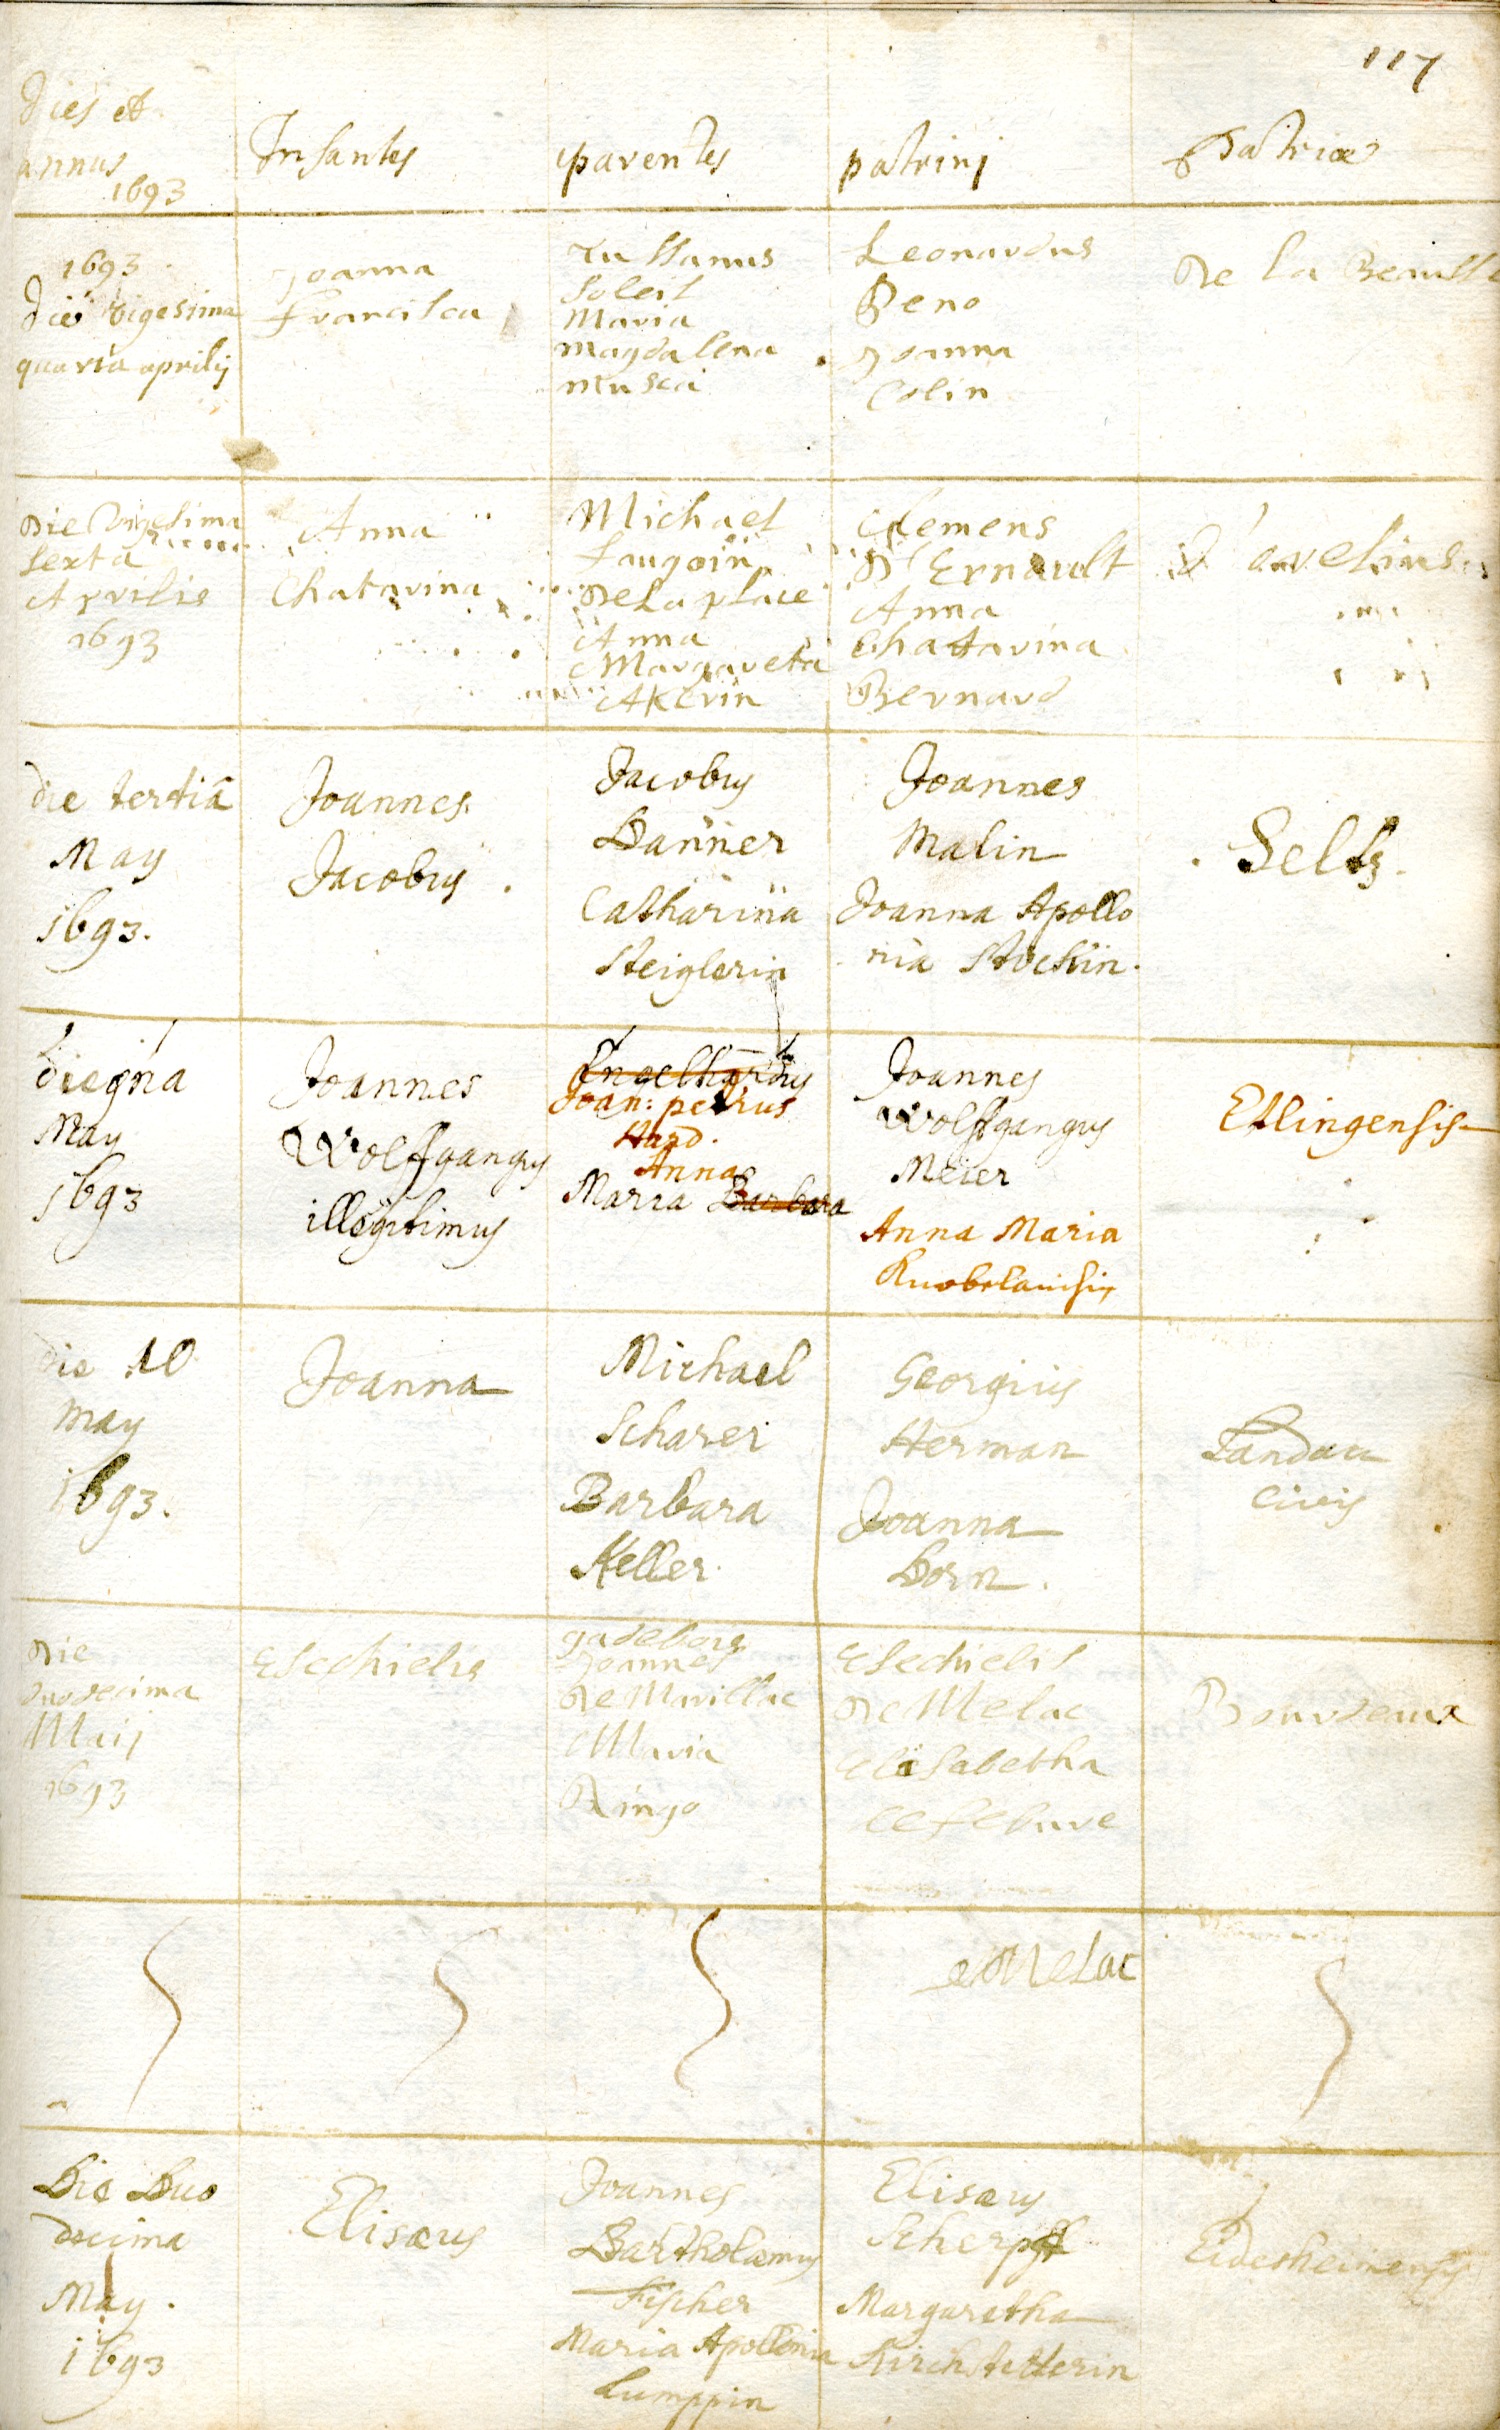 117
Dies et
annus
1693
Infantes
parentes
patrinj
Patriæ
1693
Die vigesima
quarta aprilij
Joanna
Francisca
Iulianus
Soleil
Maria
Magdalena
Musca
Leonardus
Peno
Joanna
Colin
De la
Die Vigesima
sexta
Aprilis
1693
Anna
Chatarina
Michael
Delaplace
Anna
Margareta
Clemens
D'Ernault
Anna
Chatarina
Bernard
die tertiâ
May
1693.
Joannes
Jacobus.
Jacobus
Danner
Catharina
Steiglerin
Joannes
Malin
Joanna Apollo
nia Stöckin.
Seltz.
die
May
1693
Joannes
Wolffgangus
illegitimus
Engelhardus
Joan: petrus
Hard.
Anna
Maria Barbara
Joannes
Wolffgangus
Meier
Anna Maria
Etlingensis
die 10
May
1693.
Joanna
Michael
Scharer
Barbara
Keller.
Georgius
Herman
Joanna
Dorn.
Landau
civis
Die
duodecima
Maij
1693
Esechielis
Joannes
De Marillac
Maria
Ringo
Esechielis
De Melac
Elisabetha
Lefebure
Bourdeaux
Melac
Die Duo
decima
May.
1693
Elisæus
Joannes
Bartholæmus
Fischer
Maria Apollonia
Lumppin
Elisæus
Scherpff
Margaretha
Kirchstetterin
Eidesheimensis